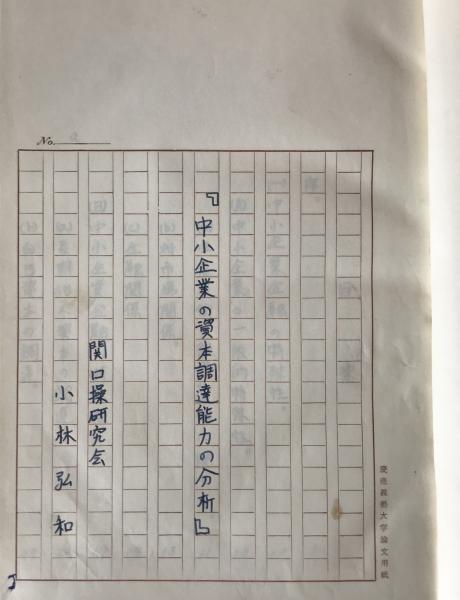 No.
『中小企業の資本調達能力の分析』
関口操研究会
小林弘和
慶應義塾大学論文用紙